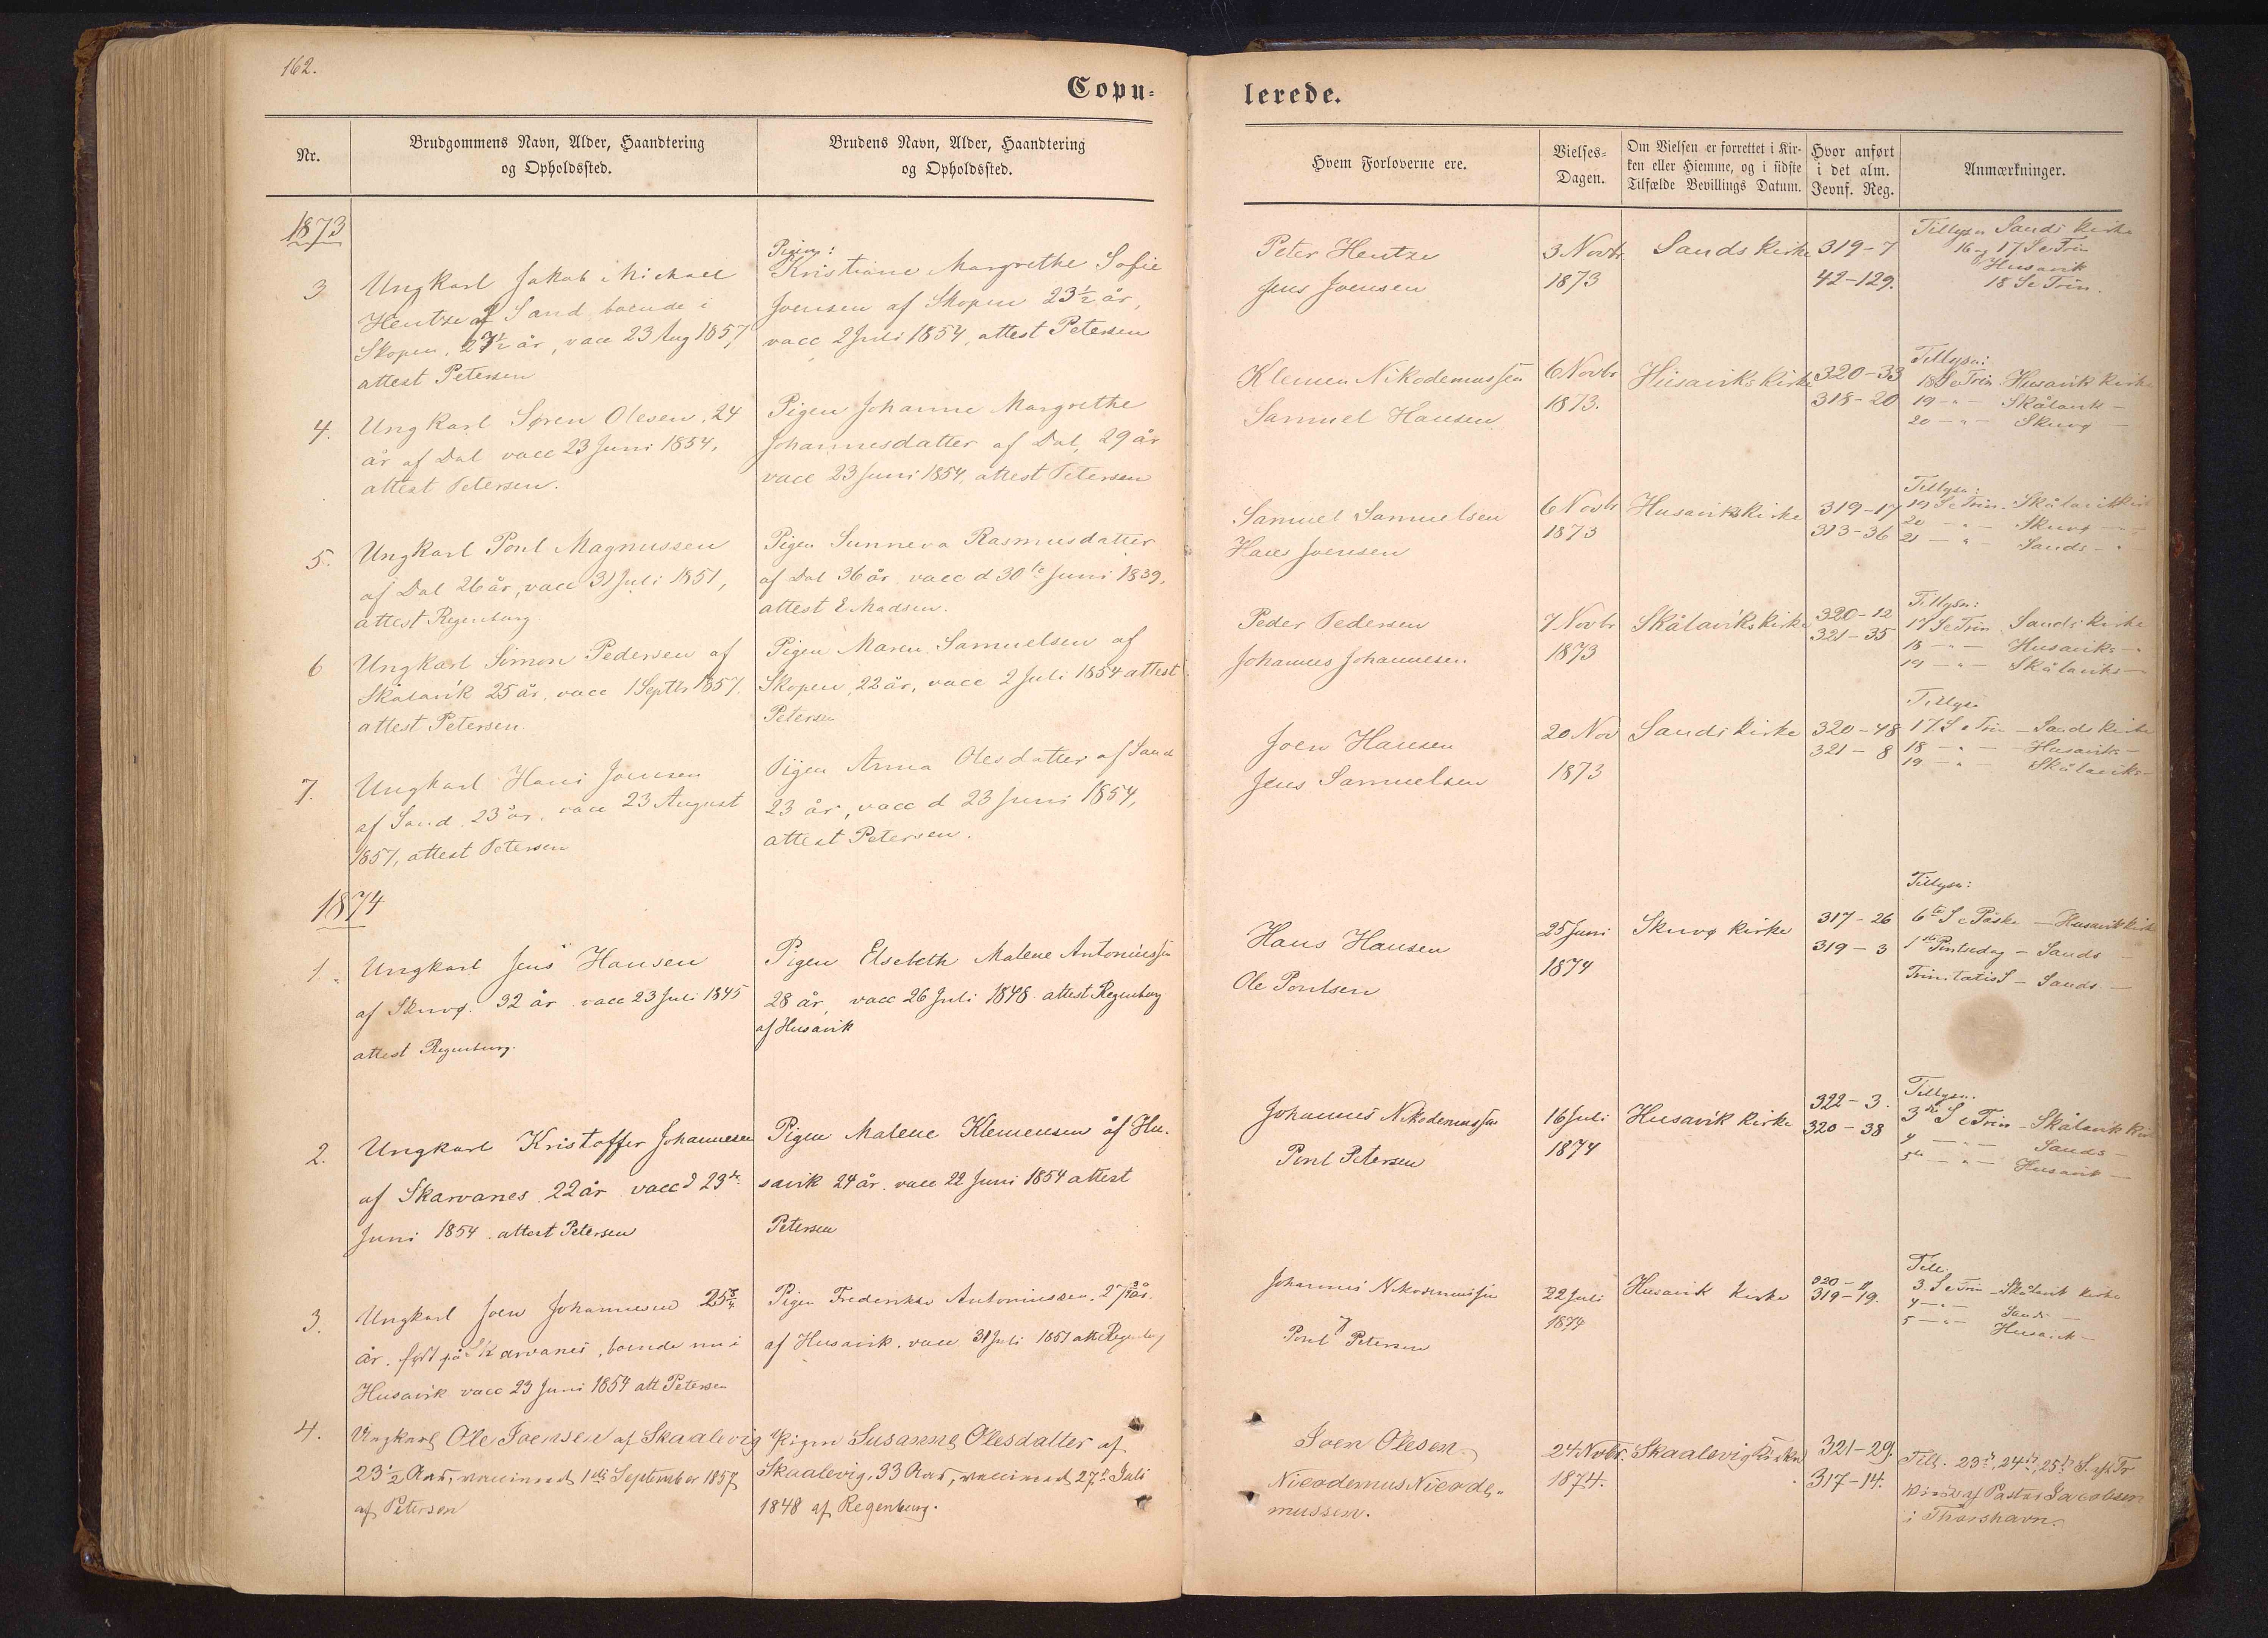 162.
Copu=
lerede.
Nr.
Brudgommens Navn, Alder, Haandtering
og Opholdssted.
Brudens Navn, Alder, Haandtering
og Opholdssted.
Hvem Forloverne ere.
Vielses=
Dagen.
Om Vielsen er forrettet i Kir-
ken eller Hiemme, og i sidste
Tilfælde Bevillings Datum.
Hvor anført
i det alm.
Jevnf. Reg.
Anmærkninger.
1873
3
Ungkarl Jakob Michael
Hentze af Sand boende i
Skopen, 27½ år, vacc 23 Aug 1857,
attest Petersen
Pigen:
Kristiane Margrethe Sofie
Joensen af Skopen 23½ år,
vacc 2 Juli 1854, attest Petersen
Peter Hentze
Jens Joensen
3 Novbr
1873
Sands Kirke
319-7
42-129.
Tillysn Sands Kirke
16 og 17 S e Trin
Husavik
18 S e Trin.
4.
Ungkarl Søren Olesen, 24
år af Dal vacc 23 Juni 1854,
attest Petersen.
Pigen Johanne Margrethe
Johannesdatter af Dal, 29 år
vacc 23 Juni 1854, attest Petersen
Klemen Nikodemussen
Samuel Hansen
6 Novbr
1873.
Húsaviks Kirke
320-33
318-20
Tillysn:
18 S e Trin. Husavik Kirke
19 - " - Skålavik -
20 - " - Skuvø -
5.
Ungkarl Poul Magnussen
af Dal 26 år, vacc 31 Juli 1851,
attest Regenburg
Pigen Sunneva Rasmusdatter
af Dal 36 år vacc d 30te Juni 1839,
attest E Madsen.
Samuel Samuelsen
Hans Joensen
6 Novbr
1873
Husaviks Kirke
319-17
313-36
Tillysn:
19 S e Trin. Skålavik Kirke
20 - " - Skuvø - " -
21 - " - Sands - "
6
Ungkarl Simon Pedersen af
Skålavik 25 år. vacc 1 Septbr 1857.
attest Petersen.
Pigen Maren Samuelsen af
Skopen, 22 år, vacc 2 Juli 1854 attest
Petersen
Peder Pedersen
Johannes Johannesen
7 Novbr
1873
Skålaviks Kirke
320-12
321-35
Tillysn:
17 S e Trin Sands Kirke
18 - " - Husaviks -
19 - " - Skålaviks -
7.
Ungkarl Hans Joensen
af Sand. 23 år, vacc 23 August
1857, attest Petersen
Pigen Anna Olesdatter af Sand
23 år, vacc d 23 Juni 1854,
attest Petersen.
Joen Hansen
Jens Samuelsen
20 Nov
1873
Sands Kirke
320-48
321-8
Tillysn
17 S e Trin - Sands Kirke
18 - " - Husaviks -
19 - " - Skålaviks -
1874
1.
Ungkarl Jens Hansen
af Skuvø. 32 år vacc 23 Juli 1845
attest Regenburg.
Pigen Elsebeth Malene Antoniussen
28 år, vacc 26 Juli 1848 attest Regenburg
af Husavik
Hans Hansen
Ole Poulsen
25 Juni
1874
Skuvø Kirke
317-26
319-3
Tillysn:
6te S e Påske - Husavik Kirke
1ste Pintsedag - Sands -
Trinitatis S - Sands -
2.
Ungkarl Kristoffer Johannesen
af Skarvanes 22 år vacc d 23de
Juni 1854. attest Petersen
Pigen Malene Klemensen af Hu-
savik 24 år. vacc 22 Juni 1854 attest
Petersen
Johannes Nikodemussen
Poul Petersen
16 Juli
1874
Husavik Kirke
322-3.
320-38
Tillysn.
3die S e Trin - Skålavik Kirke
4 - " - Sands -
5te - " - Husavik -
3.
Ungkarl Joen Johannesen 25¾
år. født på Skarvanes, boende nu i
Husavik vacc 23 Juni 1854 att Petersen
Pigen Frederikke Antoniussen, 27 år.
af Husavik. vacc 31 Juli 1851 att Regenburg
Johannes Nikodemussen
Poul Petersen
22 Juli
1874
Husavik Kirke
319-19.
Till.
3. S e Trin - Skålavik Kirke
4 - " - Sands -
5 - " - Husavik -
4.
Ungkarl Ole Joensen af Skaalevig
23½ Aar, vaccineret 1ste September 1857
af Petersen
Pigen Susanne Olesdatter af
Skaalevig, 33 Aar, vaccineret 27de Juli
1848 af Regenburg.
Joen Olesen
Nicodemus Nicode-
mussen.
24 Novbr.
1874.
Skaalevig Kirke
321-29.
317-14.
Till. 23de, 24de, 25de S. eft Tr
Viede af Pastor Jacobsen
i Thorshavn.